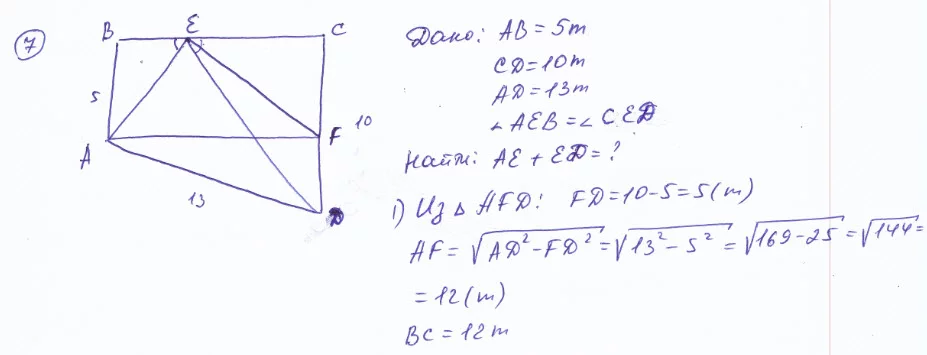 7
B E C
5
A F 10
13
D
Дано: AB = 5m
CD = 10m
AD = 13m
∠ AEB = ∠ CED
Найти: AE + ED = ?
1) Из △ AFD: FD = 10-5 = 5(m)
AF = √AD²-FD² = √13²-5² = √169-25 = √144 =
= 12(m)
BC = 12m